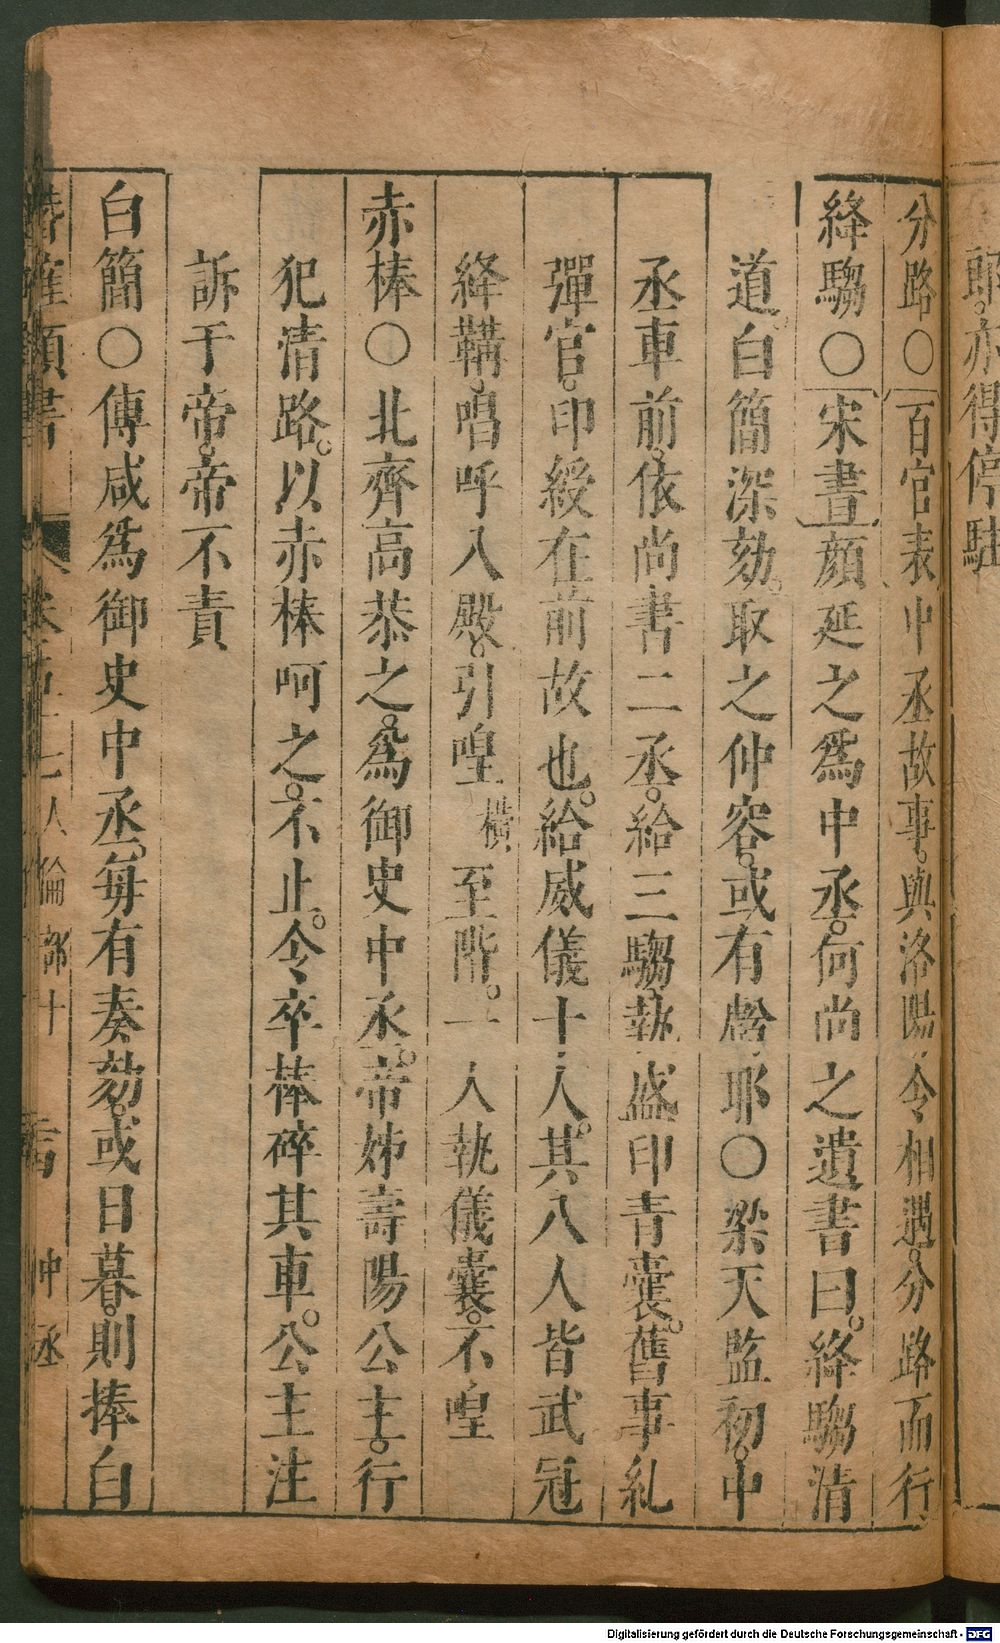 郎。亦得停駐
分路○百官表中丞故事。與洛陽令相遇。分路而行
絳騶○宋書顔延之爲中丞。何尚之遺書曰。絳騶清
道。白簡深劾。取之仲容。或有虧耶○梁天監初。中
丞車前。依尚書二丞。給三騶。執盛印青囊。舊事糺
彈官。印綬在前故也。給威儀十人。其八人皆武冠
絳韝。唱呼入殿。引喤橫至階。一人執儀囊。不喤
赤棒○北齊高恭之。爲御史中丞。帝姊壽陽公主。行
犯清路。以赤棒呵之。不止。令卒棒碎其車。公主注
訴于帝。帝不責
白簡○傅咸爲御史中丞。每有奏劾。或日暮。則捧白
類書 卷五十七人倫部十 中丞
Digitalisierung gefördert durch die Deutsche Forschungsgemeinschaft - DFG